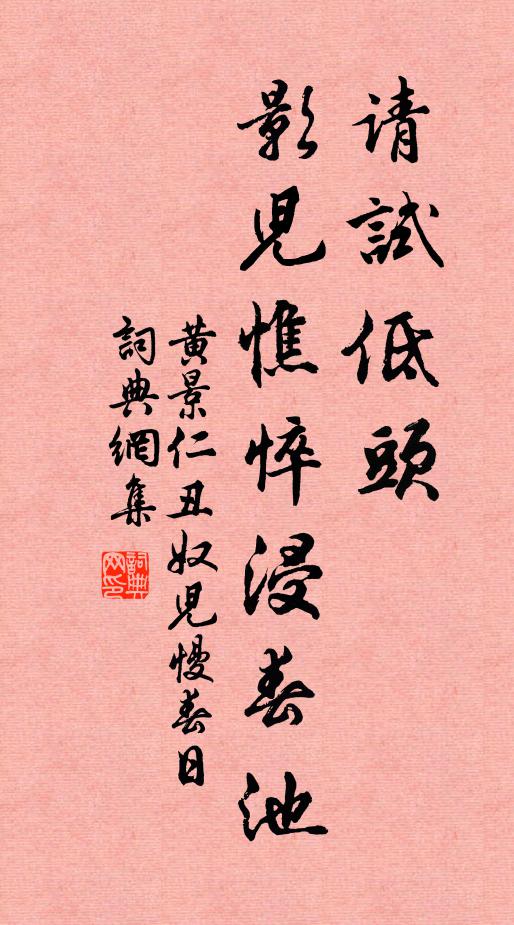 请試低頭
影児憔悴浸春池
黄景仁丑奴児慢春日
詞典網集
詞典網印